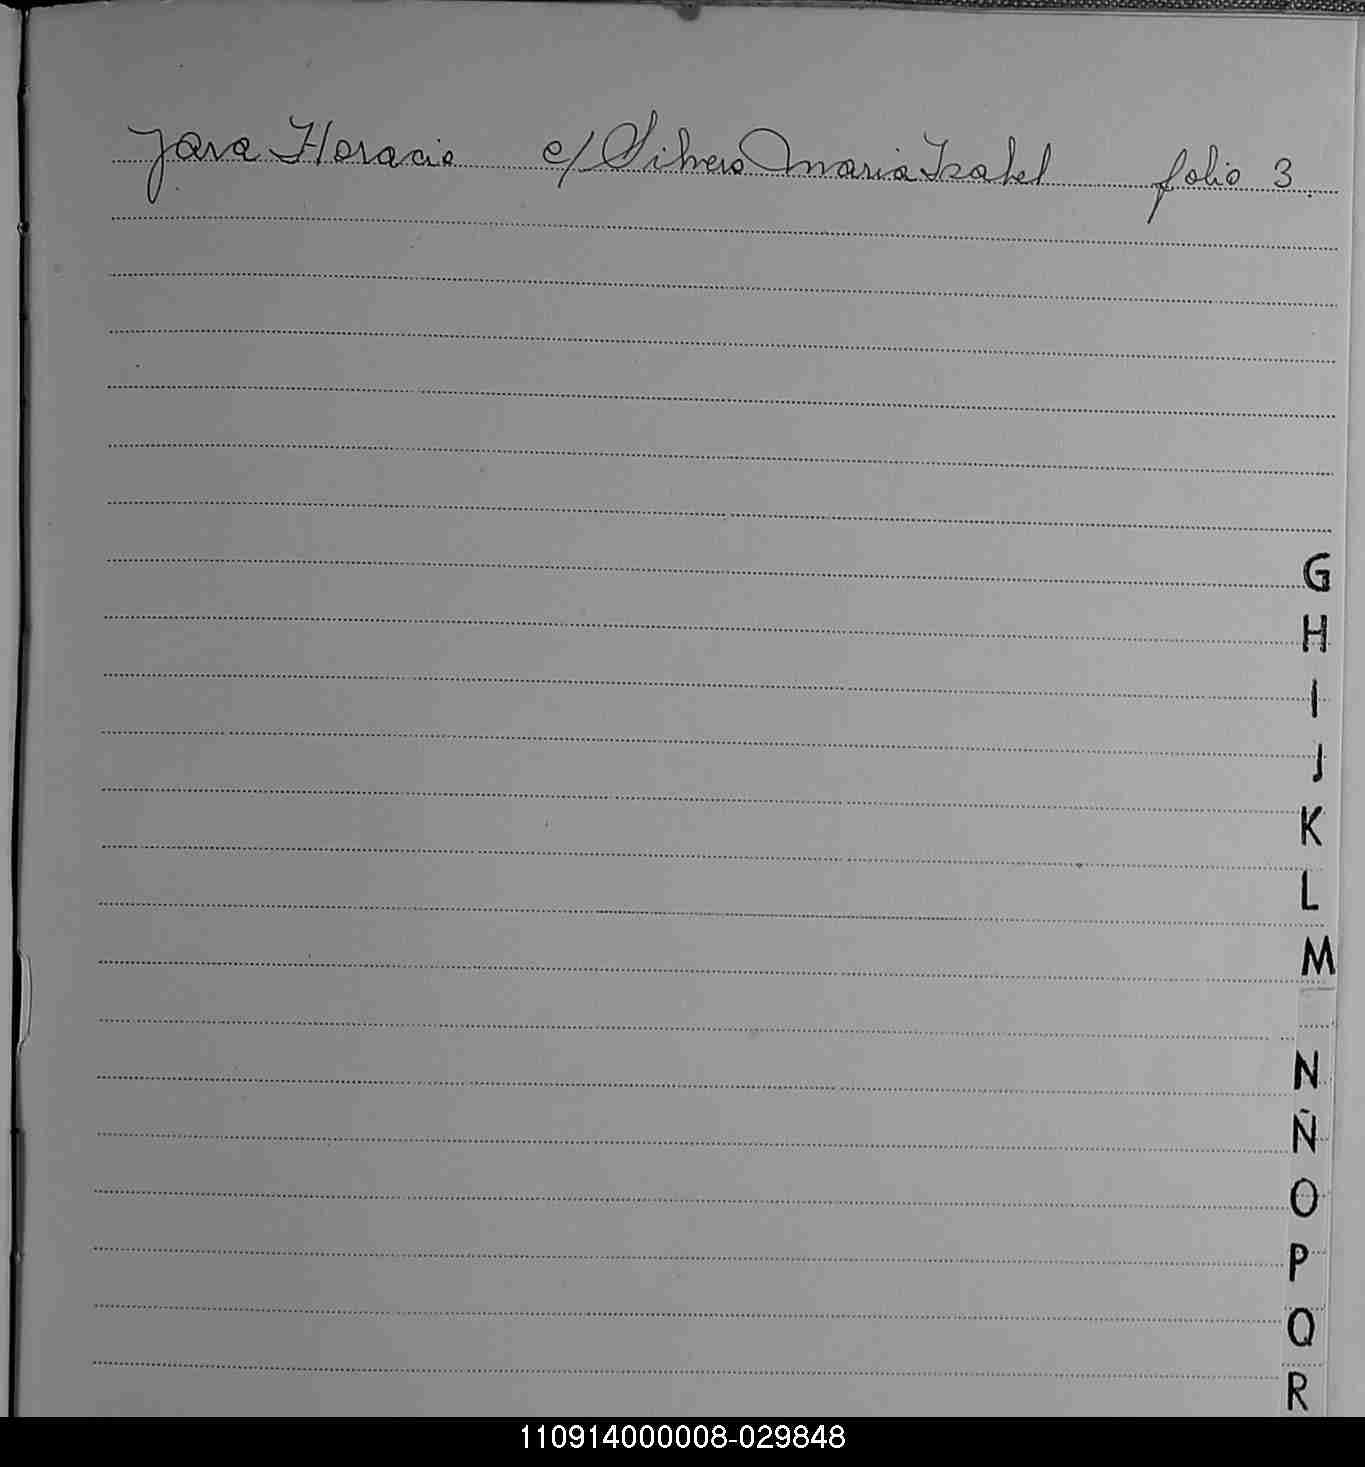 Jara Horacio c/ Silvero Maria Isabel folio 3
G
H
I
J
K
L
M
N
Ñ
O
P
Q
R
110914000008-029848